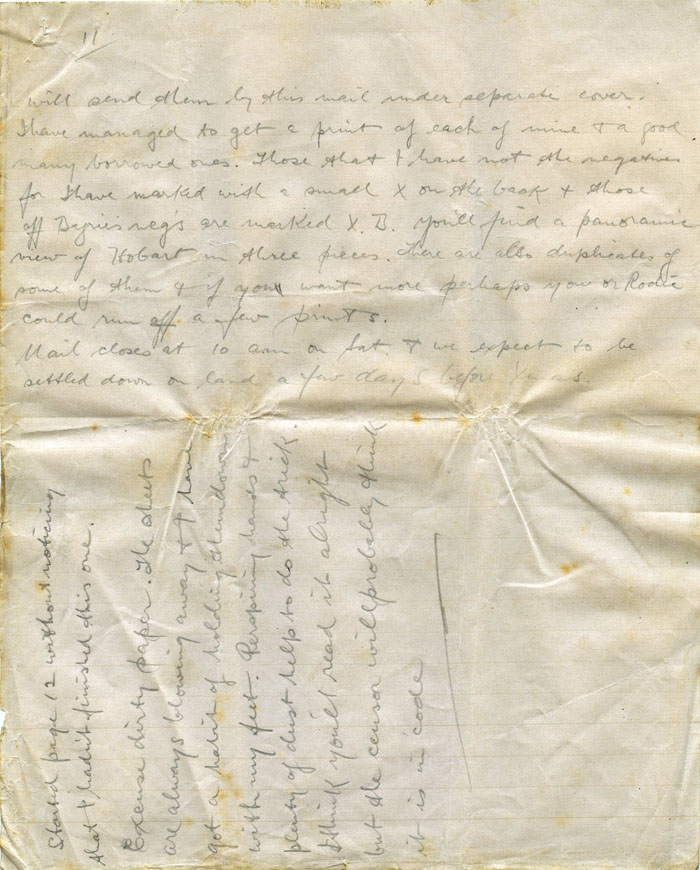 11
will send them by this mail under separate cover.
I have managed to get a print of each of mine & a good
many borrowed ones. Those that I have not the negatives
for I have marked with a small X on the back & those
off neg's are marked X.B. You'll find a panoramic
view of Hobart in three pieces. There are also duplicates of
some of them & if you want more perhaps you or
could run off a few prints.
Mail closes at 10 am on Sat. & we expect to be
settled down on land a few days before Xmas.
Started page 12 without noticing
that I hadn't finished this one.
Excuse dirty paper. The sheets
are always blowing away & I have
got a habit of holding them down
with my feet. Perspiring hands &
plenty of dust help to do the trick.
I think you'll read it alright
but the censor will probably think
it is in code